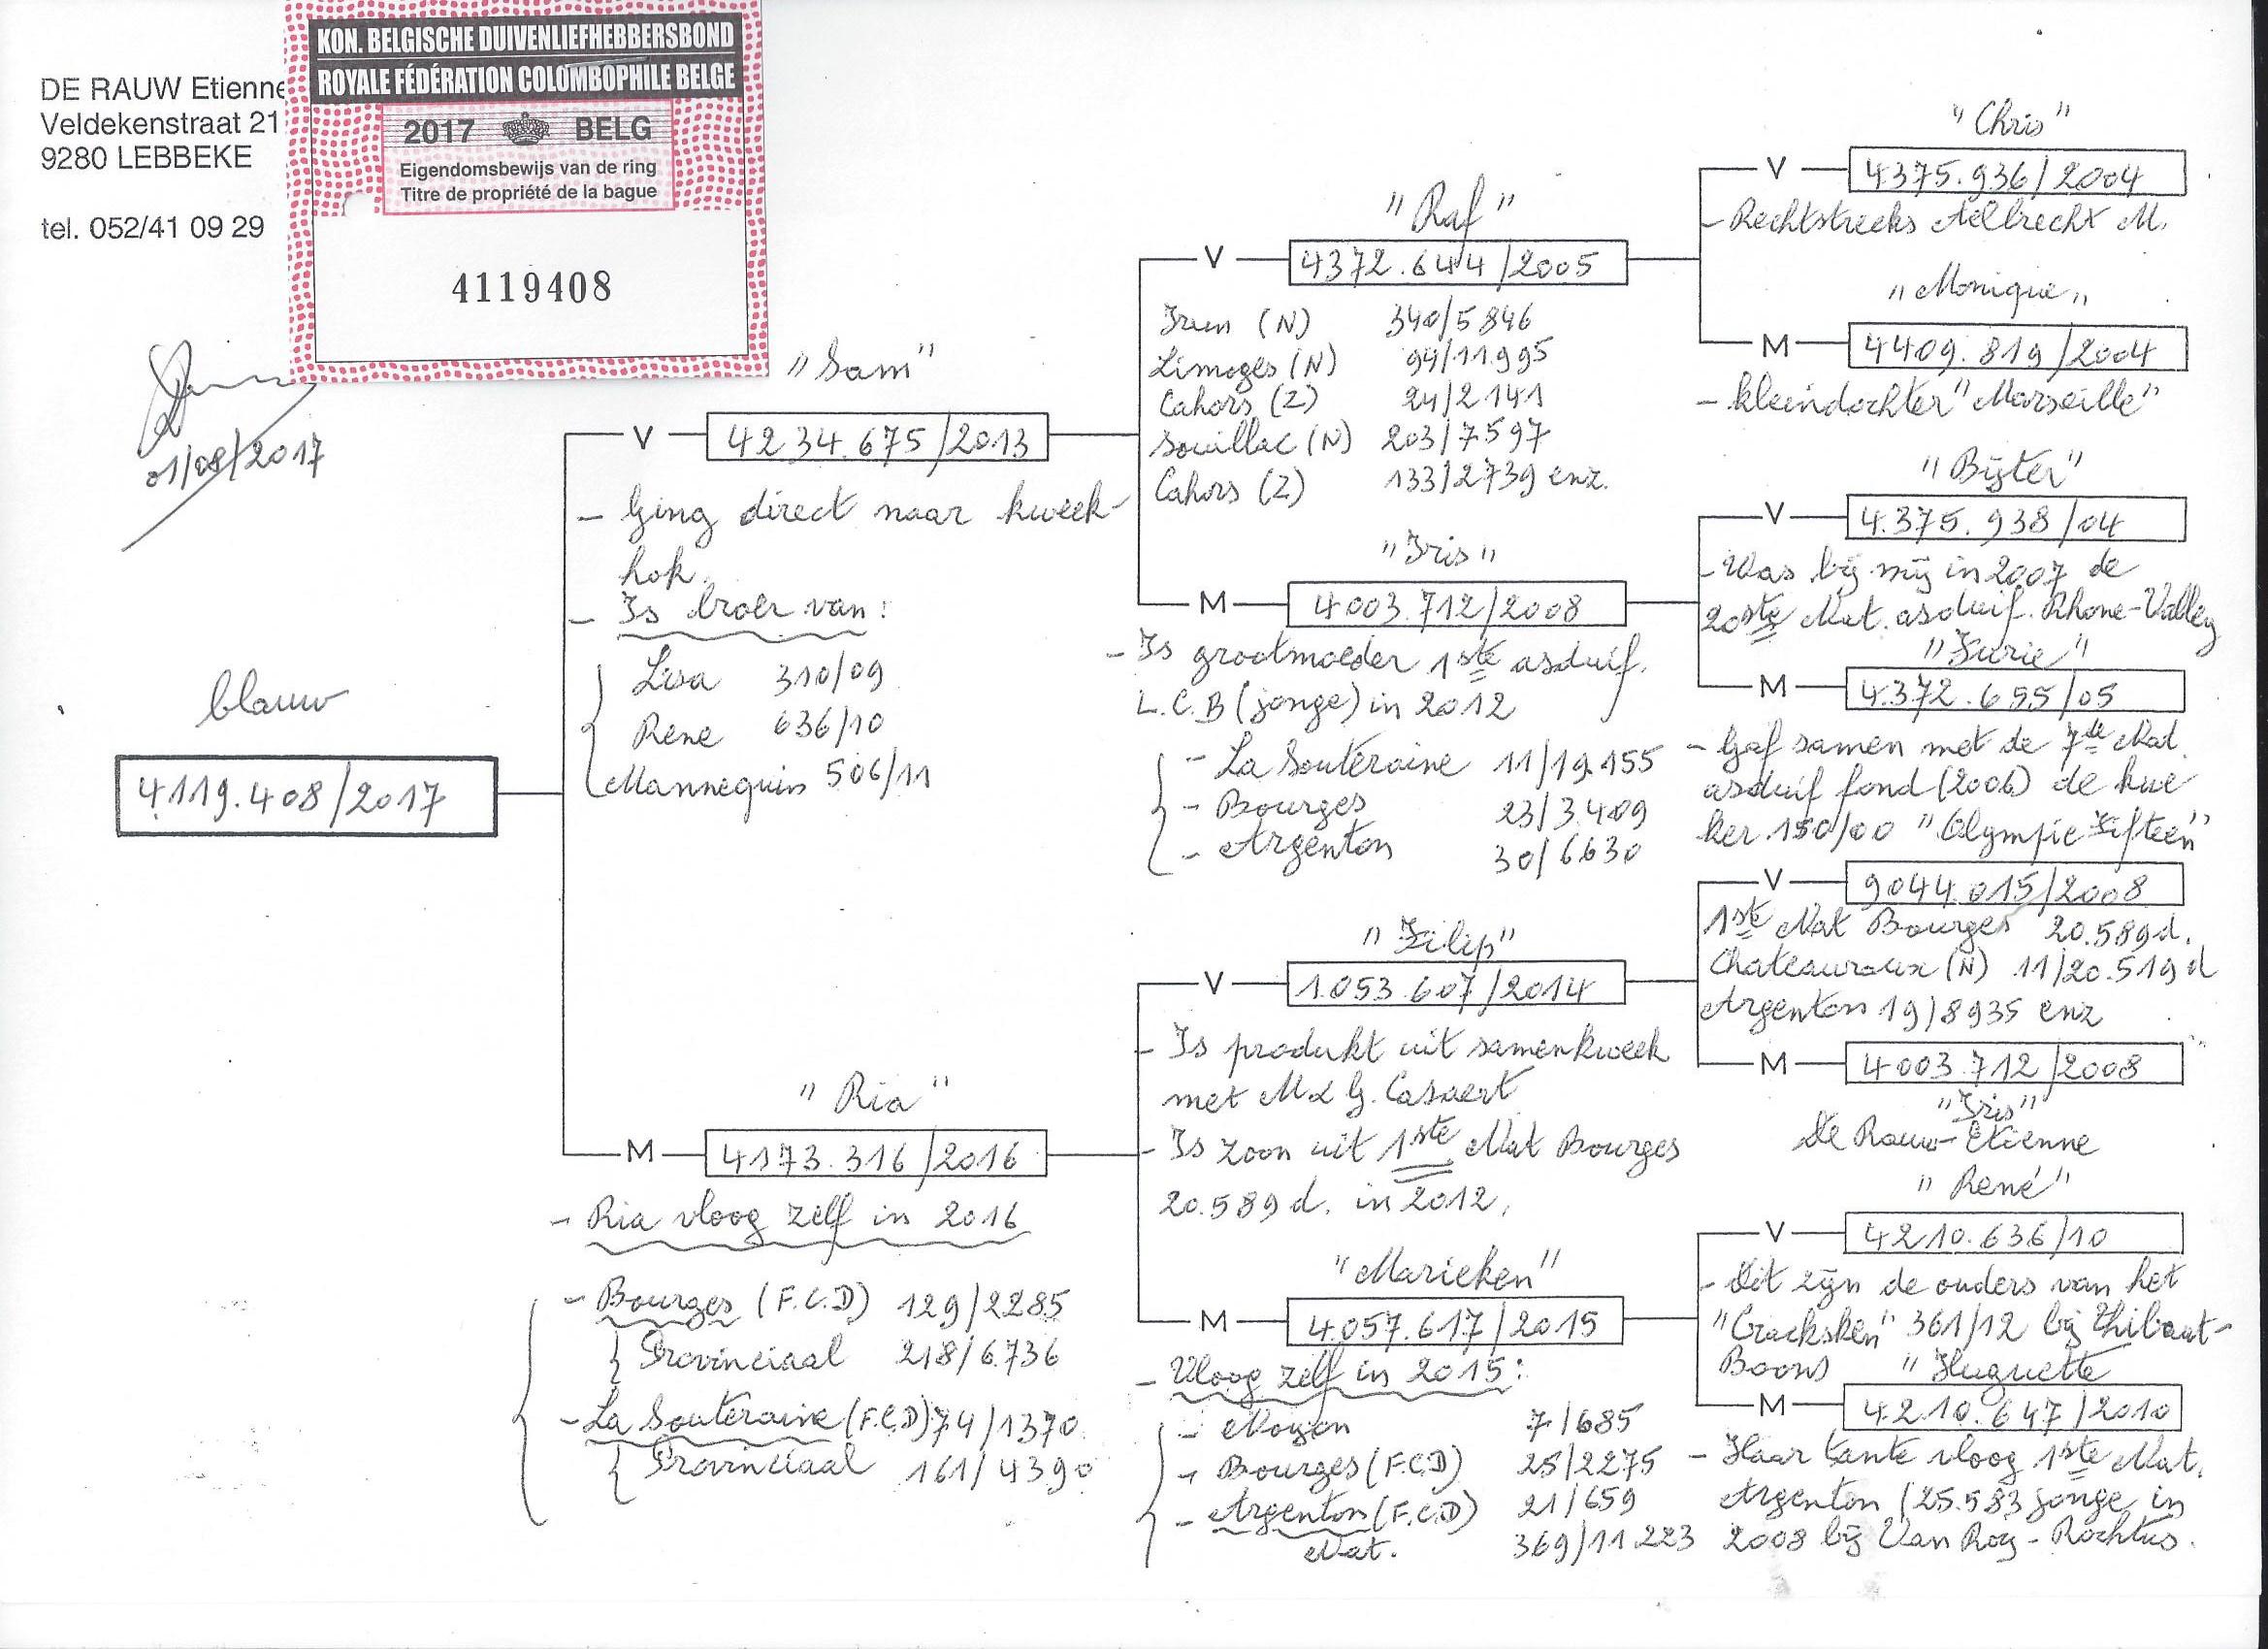 DE RAUW Etienne
Veldekenstraat 21
9280 LEBBEKE
tel. 052/41 09 29
KON. BELGISCHE DUIVENLIEFHEBBERSBOND
ROYALE FÉDÉRATION COLOMBOPHILE BELGE
2017 BELG
Eigendomsbewijs van de ring
Titre de propriété de la bague
4119408
01/08/2017
blauw
4.119.408/2017
"Sam"
V
4234.675/2013
- Ging direct naar kweek-
hok.
- Is broer van:
Lisa 310/09
Rene 636/10
Mannequin 506/11
"Ria"
M
4173.316/2016
- Ria vloog zelf in 2016
- Bourges (F.C.D) 129/2285
Provinciaal 218/6.736
- La Souteraine (F.C.D) 74/1370
Provinciaal 161/4390
"Raf"
V
4372.644/2005
Irun (N) 340/5846
Limoges (N) 94/11.995
Cahors (Z) 24/2141
Souillac (N) 203/7597
Cahors (Z) 133/2739 enz.
"Iris"
M
4.003.712/2008
- Is grootmoeder 1ste asduif.
L.C.B (jonge) in 2012
- La Souteraine 11/19.155
- Bourges 23/3.409
- Argenton 30/6630
"Filip"
V
1.053.607/2014
- Is produkt uit samenkweek
met M & G. Casaert
- Is zoon uit 1ste Nat Bourges
20.589d. in 2012.
"Marieken"
M
4.057.617/2015
- Vloog zelf in 2015:
- Noyon 7/685
- Bourges (F.C.D) 25/2275
- Argenton (F.C.D) 21/659
Nat. 369/11.223
"Chris"
V
4375.936/2004
- Rechtstreeks Aelbrecht M.
"Monique"
M
4409.819/2004
- kleindochter "Marseille"
"Bijter"
V
4.375.938/04
- Was bij mij in 2007 de
20ste Nat. asduif. Rhone-Valley
"Furie"
M
4.372.655/05
- Gaf samen met de 7de Nat.
asduif fond (2006) de kwe
ker 150/00 "Olympic Fifteen"
V
9044.015/2008
1ste Nat Bourges 20.589d.
Chateauroux (N) 11/20.519d
Argenton 19/8935 enz
M
4003.712/2008
"Iris"
De Rauw-Etienne
"René"
V
4210.636/10
- Dit zijn de ouders van het
"Cracksken" 361/12 bij Thibaut-
Boons "Huguette
M
4210.647/2010
- Haar tante vloog 1ste Nat.
Argenton /25.583 jonge in
2008 bij Van Roy-Rochtus.